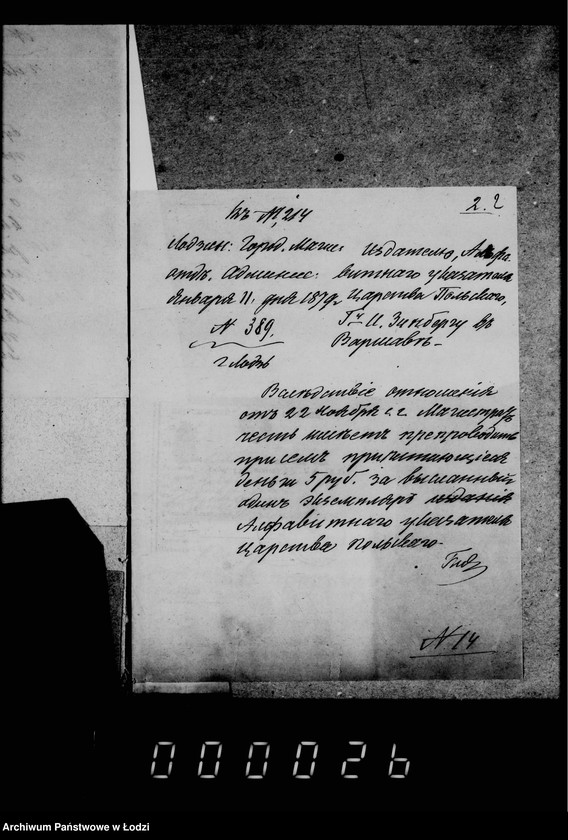 Къ № 214
2. 2
Лодзин: Город. Маги:
отд. Админис:
Января 11 дня 1879 г.
№ 389.
г. Лодзь
Издателю, Алфа-
витнаго указателя
Царства Польскаго,
Гну И. Зинбергу въ
Варшавѣ.
Вслѣдствіе отношенія
отъ 22 Ноября с. г. Магистратъ
честь имѣетъ препроводить
при семъ причитающіеся
деньги 5 руб. за высланный
одинъ экземпляръ изданія
Алфавитнаго указателя
Царства Польскаго.
№ 14
000026
Archiwum Państwowe w Łodzi